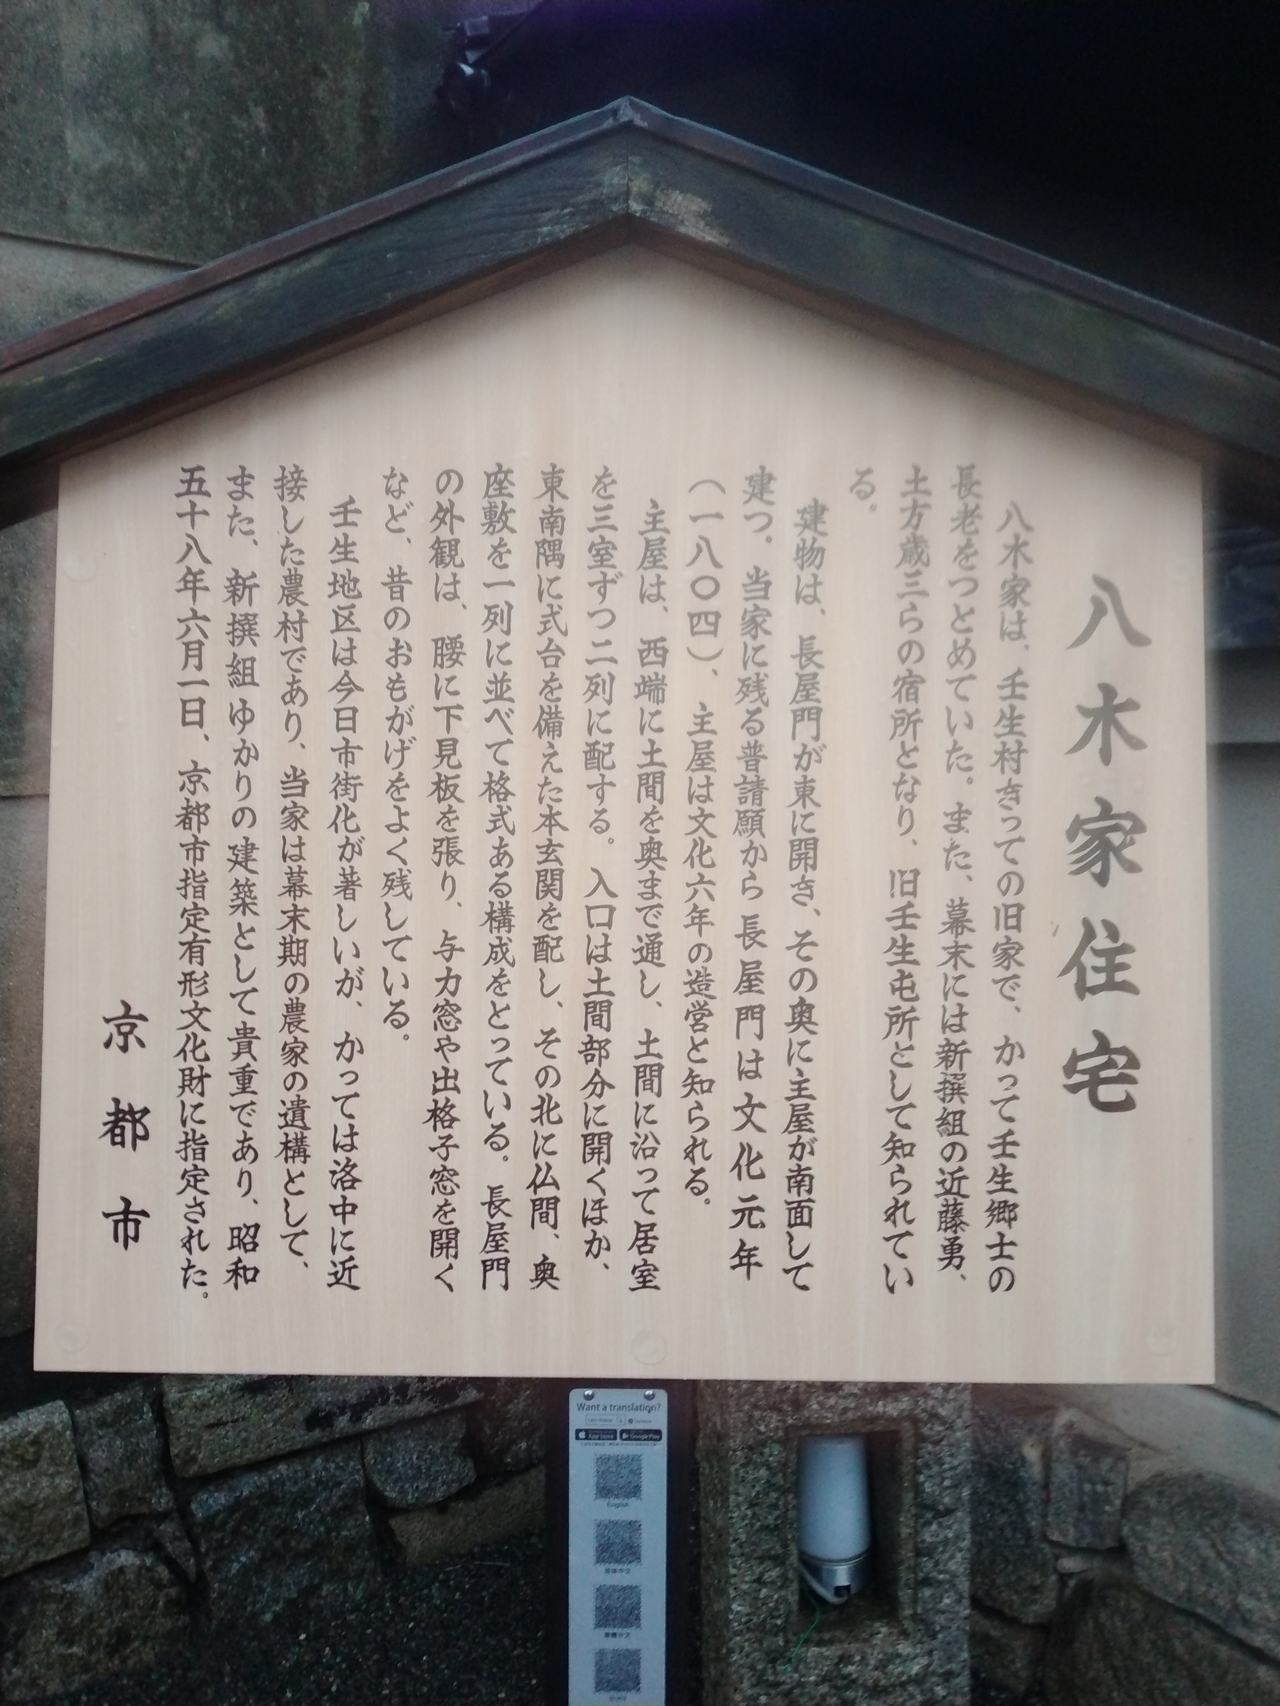 八木家住宅
八木家は、壬生村きっての旧家で、かって壬生郷士の
長老をつとめていた。また、幕末には新撰組の近藤勇、
土方歳三らの宿所となり、旧壬生屯所として知られてい
る。
建物は、長屋門が東に開き、その奥に主屋が南面して
建つ。当家に残る普請願から長屋門は文化元年
（一八〇四）、主屋は文化六年の造営と知られる。
主屋は、西端に土間を奥まで通し、土間に沿って居室
を三室ずつ二列に配する。入口は土間部分に開くほか、
東南隅に式台を備えた本玄関を配し、その北に仏間、奥
座敷を一列に並べて格式ある構成をとっている。長屋門
の外観は、腰に下見板を張り、与力窓や出格子窓を開く
など、昔のおもがげをよく残している。
壬生地区は今日市街化が著しいが、かっては洛中に近
接した農村であり、当家は幕末期の農家の遺構として、
また、新撰組ゆかりの建築として貴重であり、昭和
五十八年六月一日、京都市指定有形文化財に指定された。
京都市
Want a translation?
App Store
Google Play
English